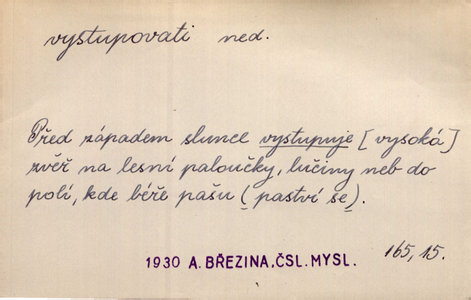 vystupovati ned.
Před západem slunce vystupuje [vysoká]
zvěř na lesní paloučky, lučiny neb do
polí, kde béře pašu (paství se).
1930 A. BŘEZINA, ČSL. MYSL. 165, 15.